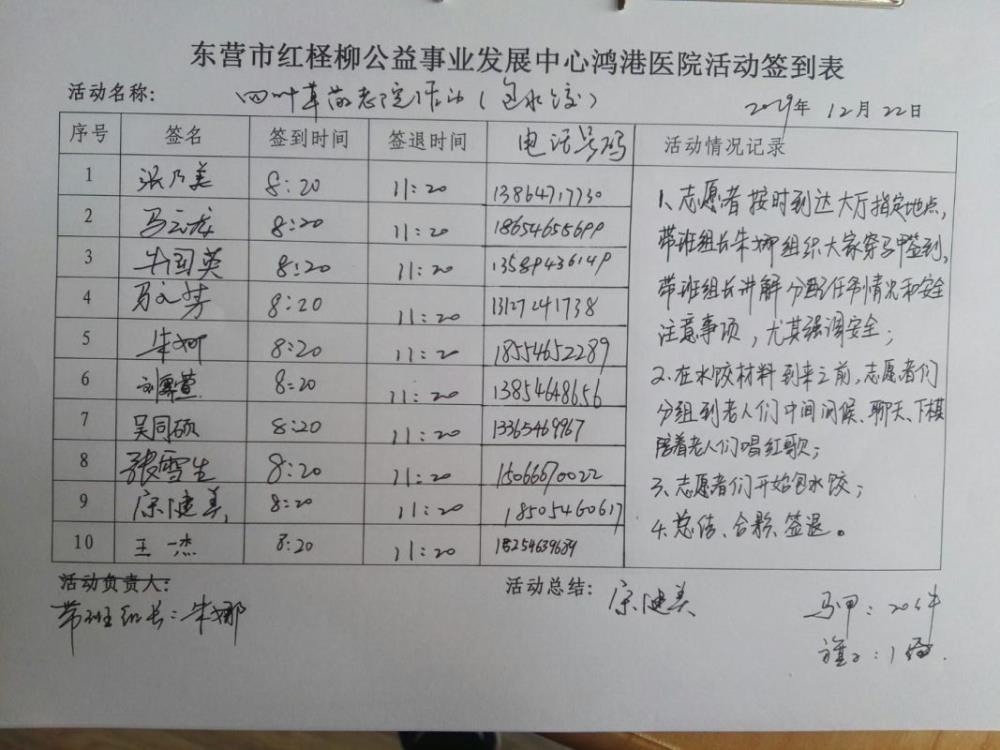 东营市红柽柳公益事业发展中心鸿港医院活动签到表
活动名称: 四叶草敬老院活动(包水饺) 2019年 12月 22日
序号 签名 签到时间 签退时间 电话号码 活动情况记录
1 张乃美 8:20 11:20 13864717730
2 马云龙 8:20 11:20 18654655699
3 牛国英 8:20 11:20 13589436149
4 马文芳 8:20 11:20 13127241738
5 朱娜 8:20 11:20 18554652289
6 8:20 11:20 13854648656
7 吴同硕 8:20 11:20 13365469967
8 张雪生 8:20 11:20 15066670022
9 宗健美 8:20 11:20 18505460617
10 王一杰 8:20 11:20 18254639689
1、志愿者按时到达大厅指定地点,
带班组长朱娜组织大家穿马甲签到,
带班组长讲解分配任务情况和安全
注意事项,尤其强调安全;
2、在水饺材料到来之前,志愿者们
分组到老人们中间问候、聊天、下棋
陪着老人们唱红歌;
3、志愿者们开始包水饺;
4、总结、合影、签退。
活动负责人:
带班组长:朱娜
活动总结: 宗健美
马甲:20件
旗子:1面